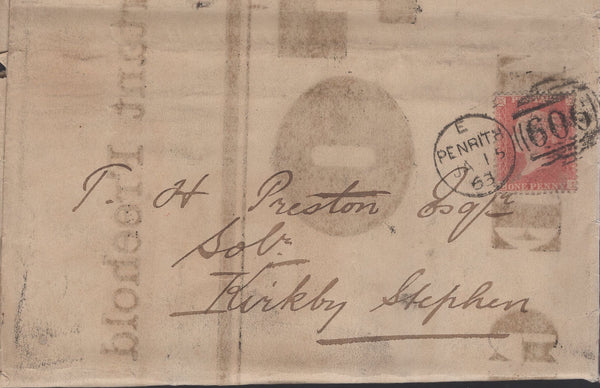 E
PENRITH
JA 15
63
606
ONE PENNY
T. H Preston Esqr
Solr
Kirkby Stephen
Freehold